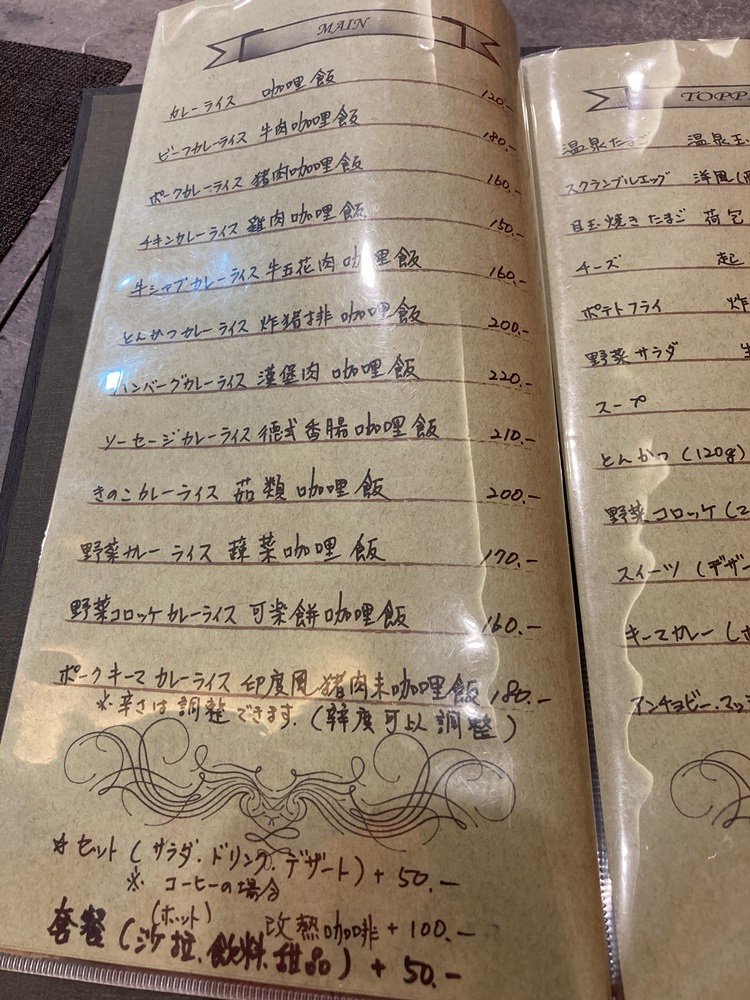 MAIN
カレーライス 咖哩飯 120.-
ビーフカレーライス 牛肉咖哩飯 180.-
ポークカレーライス 猪肉咖哩飯 160.-
チキンカレーライス 雞肉咖哩飯 150.-
牛シャブカレーライス 牛五花肉咖哩飯 160.-
とんかつカレーライス 炸猪排咖哩飯 200.-
ハンバーグカレーライス 漢堡肉咖哩飯 220.-
ソーセージカレーライス 德式香腸咖哩飯 210.-
きのこカレーライス 菇類咖哩飯 200.-
野菜カレーライス 蔬菜咖哩飯 170.-
野菜コロッケカレーライス 可楽餅咖哩飯 160.-
ポークキーマカレーライス 印度風猪肉末咖哩飯 180.-
※辛さは調整できます.(辣度可以調整)
セット(サラダ.ドリンク.デザート)+50.-
※コーヒーの場合
(ホット) 改熱咖啡+100.-
套餐(沙拉.飲料.甜品)+50.-
TOPP
温泉たまご 温泉玉
スクランブルエッグ 洋風(
目玉焼きたまご 荷包
チーズ 起
ポテトフライ 炸
野菜サラダ 生
スープ
とんかつ(120g)
野菜コロッケ(2
スイーツ(デザー
キーマカレー(ポ
アンチョビ.マッシ